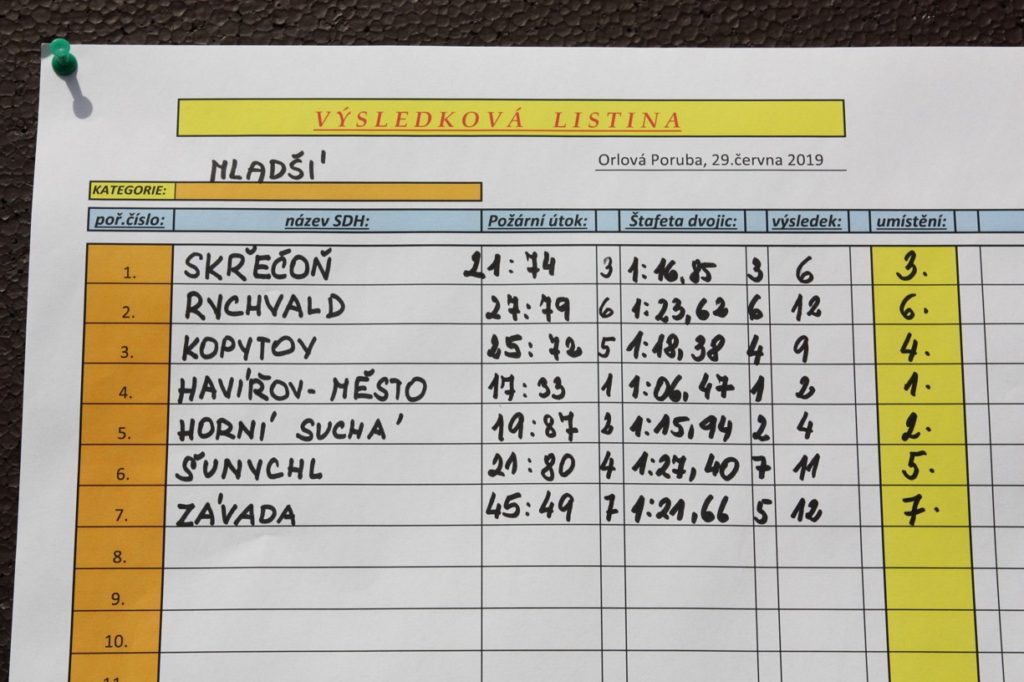 VÝSLEDKOVÁ LISTINA
MLADŠÍ
Orlová Poruba, 29.června 2019
KATEGORIE:
poř.číslo: název SDH: Požární útok: Štafeta dvojic: výsledek: umístění:
1. SKŘEČOŇ 21:74 3 1:16,85 3 6 3.
2. RYCHVALD 27:79 6 1:23,62 6 12 6.
3. KOPYTOV 25:72 5 1:18,38 4 9 4.
4. HAVÍŘOV-MĚSTO 17:33 1 1:06,47 1 2 1.
5. HORNÍ SUCHÁ 19:87 2 1:15,94 2 4 2.
6. ŠUNYCHL 21:80 4 1:27,40 7 11 5.
7. ZÁVADA 45:49 7 1:21,66 5 12 7.
8.
9.
10.